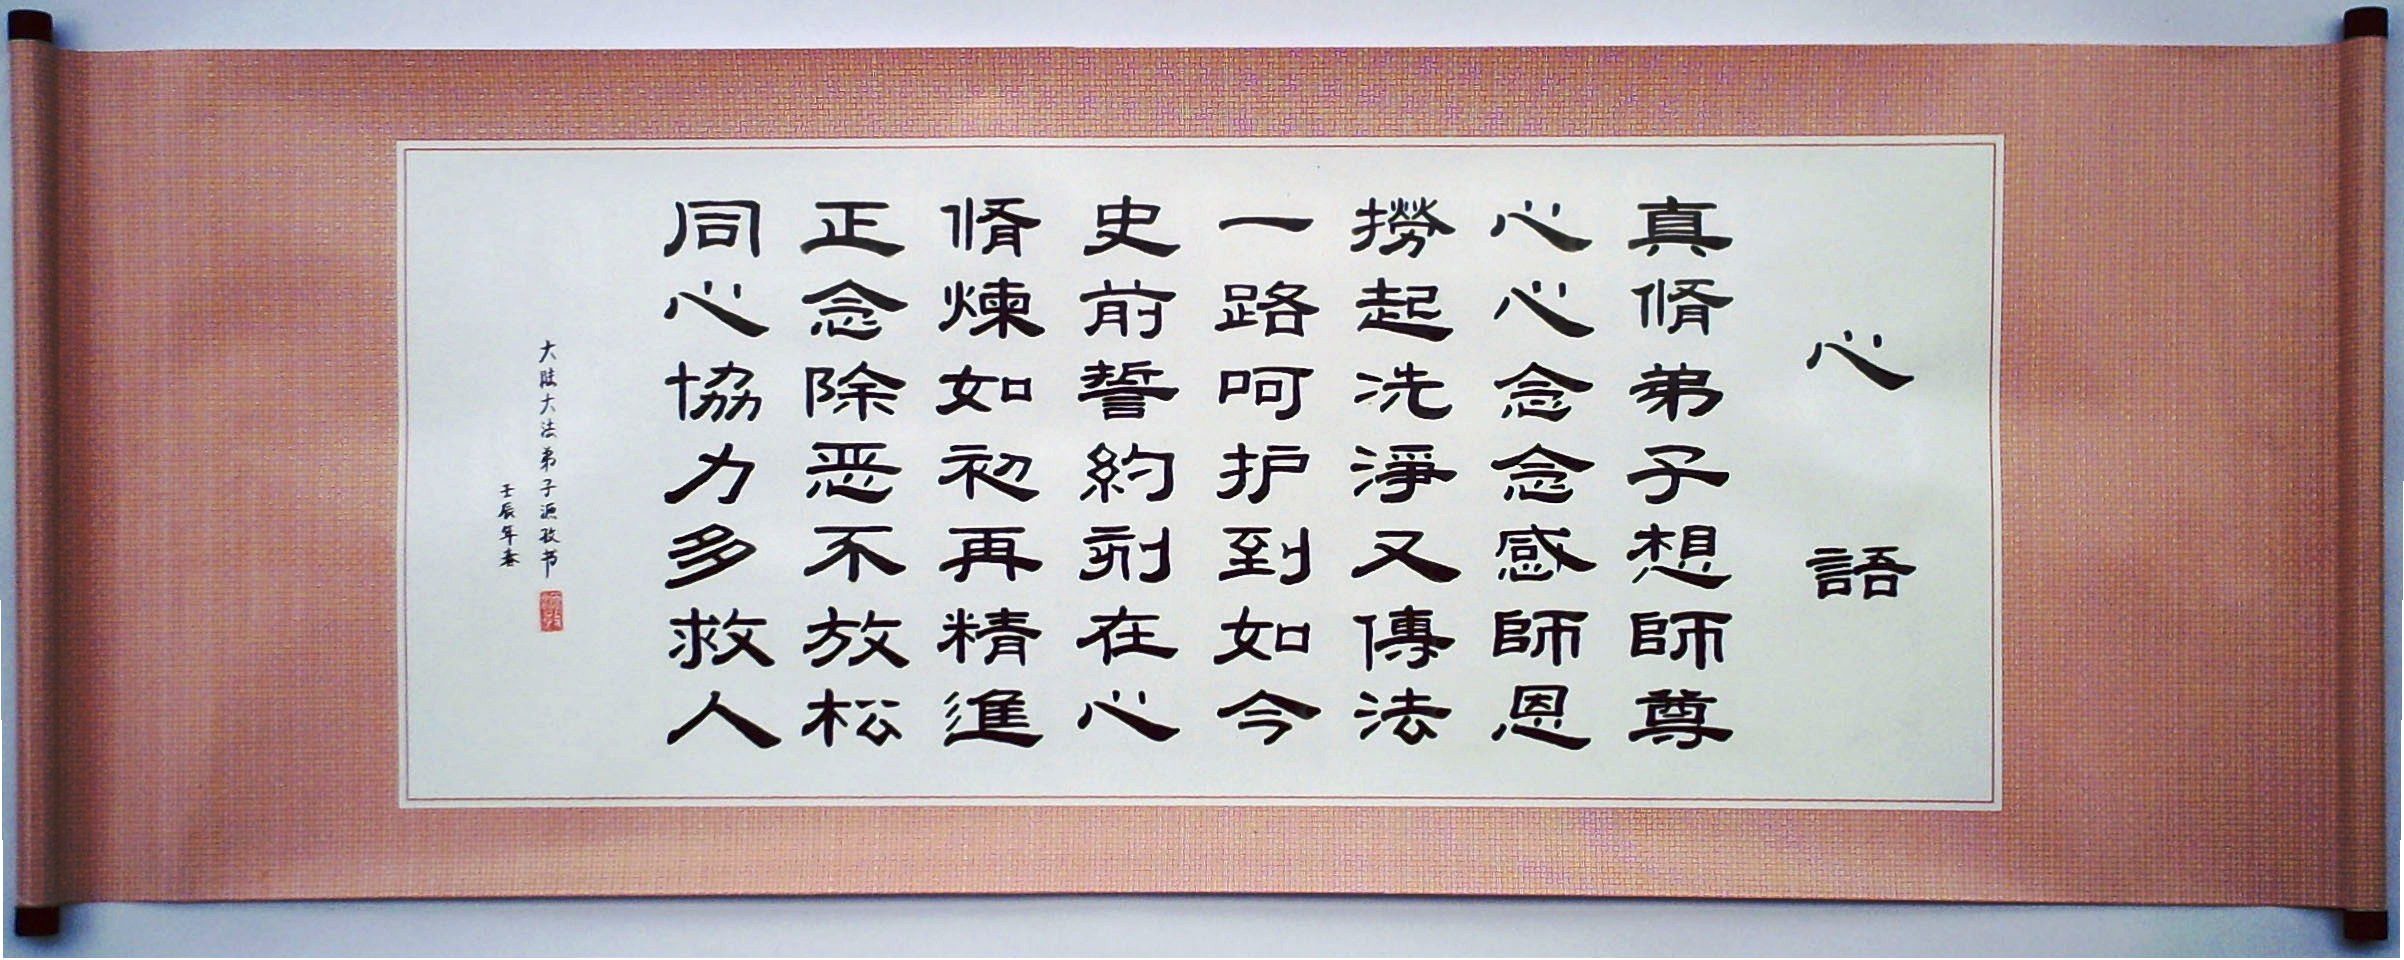 心語
真脩弟子想師尊
心心念念感師恩
撈起洗淨又傳法
一路呵护到如今
史前誓約刻在心
脩煉如初再精進
正念除恶不放松
同心協力多救人
大陸大法弟子源孜书
壬辰年春